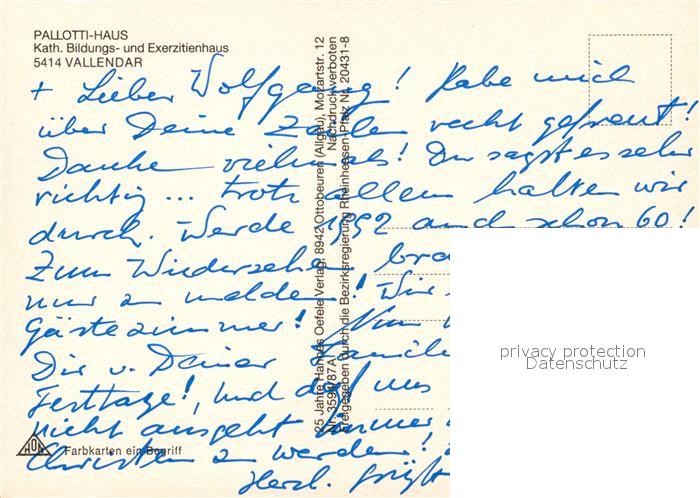 PALLOTTI-HAUS
Kath. Bildungs- und Exerzitienhaus
5414 VALLENDAR
+ Lieber Wolfgang! Habe mich
über Deine Zeilen recht gefreut!
Danke vielmals! Du sagst es sehr
richtig ... trotz allem halten wir
durch. Werde 1992 auch schon 60!
Zum Wiedersehen
nur zu melden! Wir
Gästezimmer! Nun
Dir u. Deiner Familie
Festtage! Und daß uns
nicht ausgeht immer
Christen zu werden!
Herzl. grüßt
25 Jahre Hannes Oefele Verlag, 8942 Ottobeuren (Allgäu), Mozartstr. 12
Nr. 3594/87 A Nachdruck verboten
Freigegeben durch die Bezirksregierung Rheinhessen-Pfalz Nr. 20431-8
HOV Farbkarten ein Begriff
privacy protection
Datenschutz